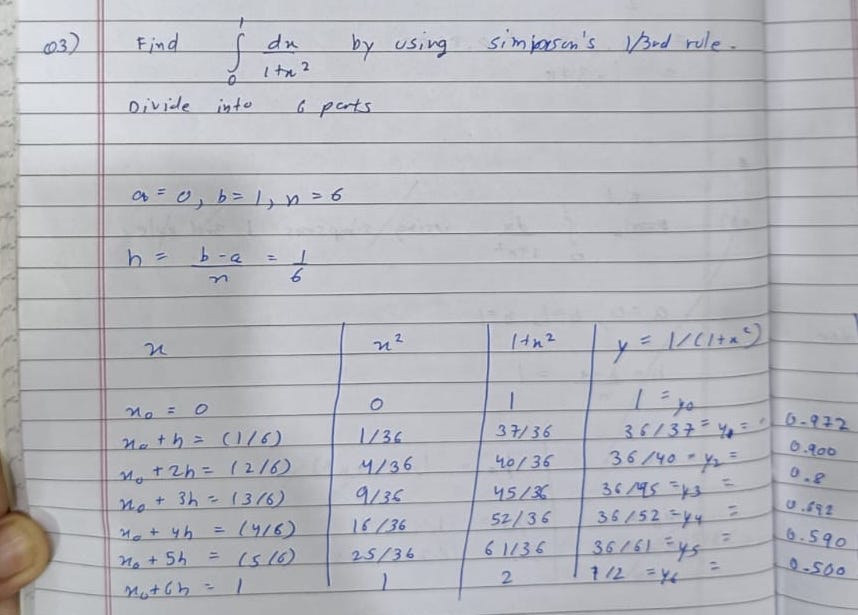 Q3) Find ∫₀¹ dx/1+x² by using simpson's 1/3rd rule.
Divide into 6 parts
a = 0, b = 1, n = 6
h = b-a/n = 1/6
x | x² | 1+x² | y = 1/(1+x²)
x₀ = 0 | 0 | 1 | 1 = y₀
x₀ + h = (1/6) | 1/36 | 37/36 | 36/37 = y₁ = 0.972
x₀ + 2h = (2/6) | 4/36 | 40/36 | 36/40 = y₂ = 0.900
x₀ + 3h = (3/6) | 9/36 | 45/36 | 36/45 = y₃ = 0.8
x₀ + 4h = (4/6) | 16/36 | 52/36 | 36/52 = y₄ = 0.692
x₀ + 5h = (5/6) | 25/36 | 61/36 | 36/61 = y₅ = 0.590
x₀ + 6h = 1 | 1 | 2 | 1/2 = y₆ = 0.500